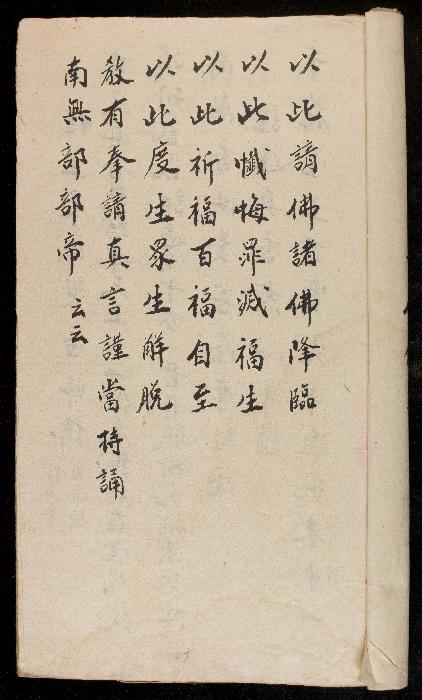 以此請佛諸佛降臨
以此懺悔罪滅福生
以此祈福百福自至
以此度生眾生解脫
教有奉請真言謹當持誦
南無部部帝云云